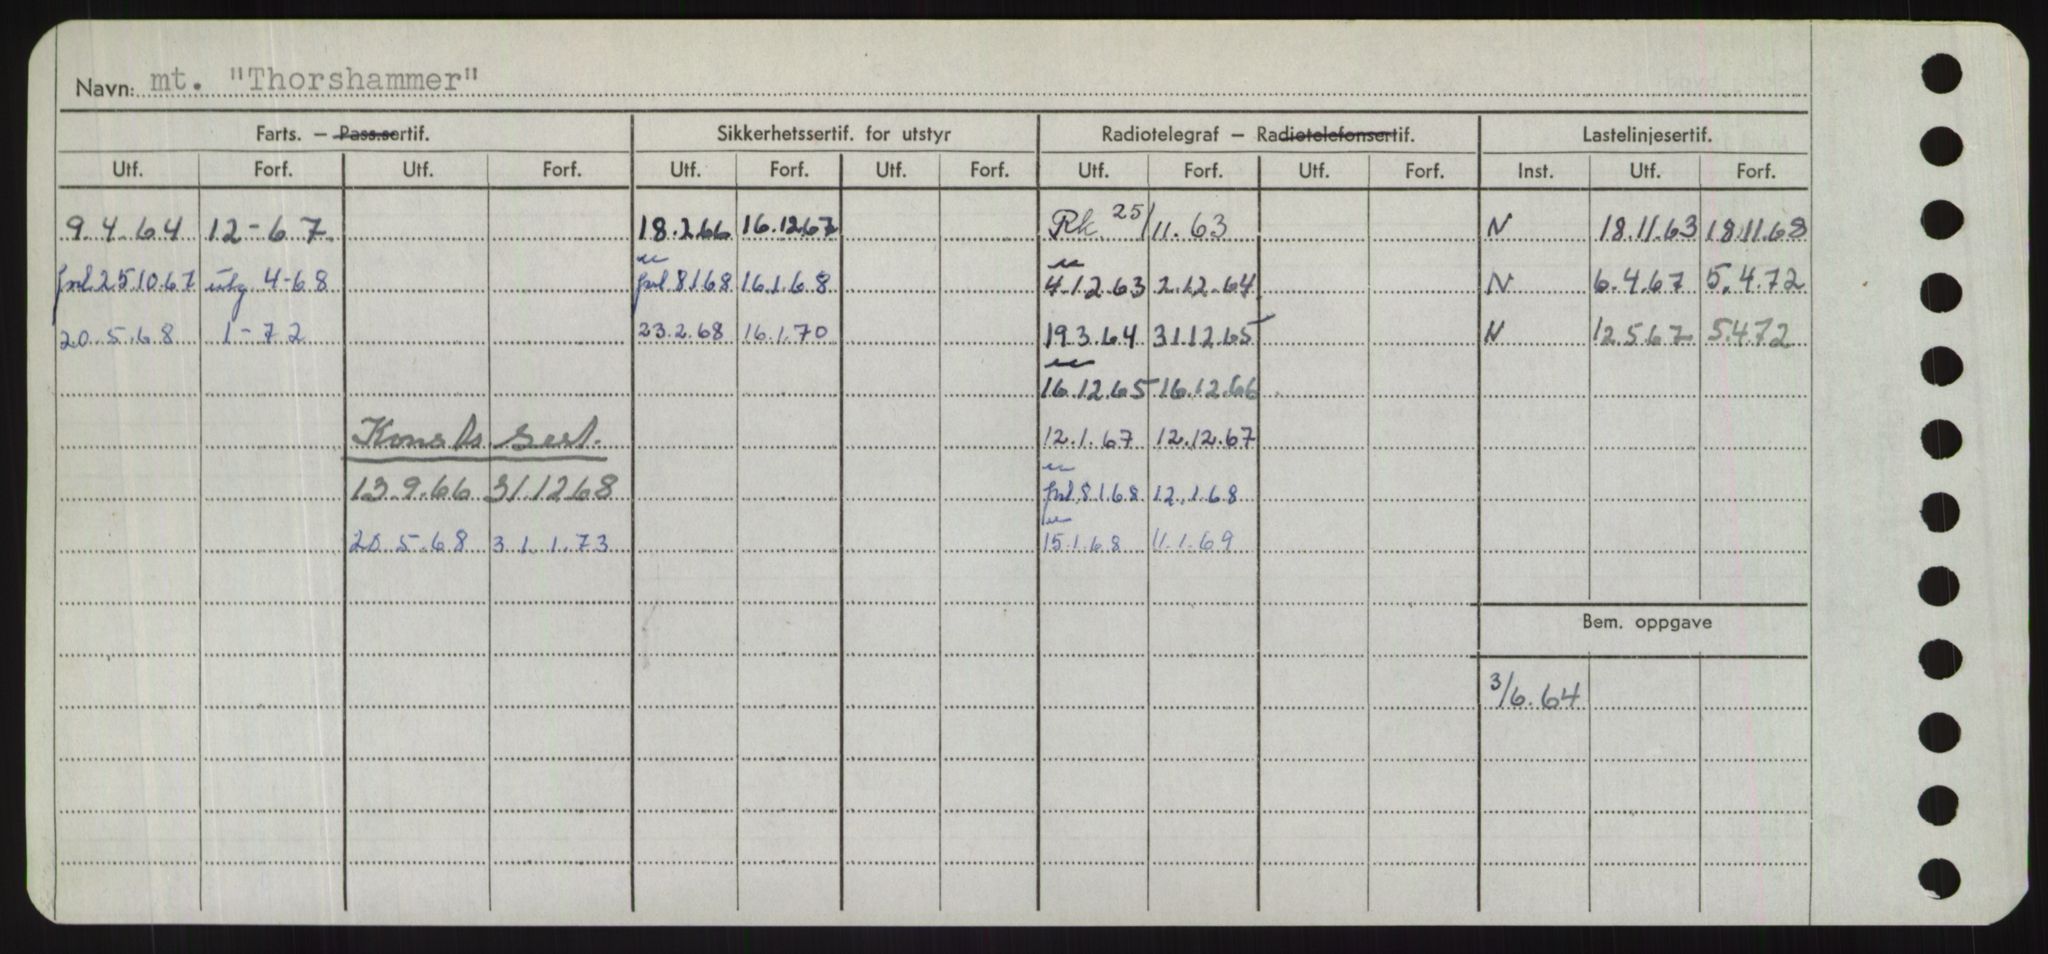 Navn: mt. "Thorshammer"
Farts. — Pass.sertif. Sikkerhetssertif. for utstyr Radiotelegraf — Radiotelefonsertif. Lastelinjesertif.
Utf. Forf. Utf. Forf. Utf. Forf. Utf. Forf. Utf. Forf. Utf. Forf. Inst. Utf. Forf.
9.4.64 12-67 18.2.66 16.12.67 Rk. 25/11.63 N 18.11.63 18.11.68
25.10.67 4-68 8.1.68 16.1.68 4.12.63 2.12.64 N 6.4.67 5.4.72
20.5.68 1-72 23.2.68 16.1.70 19.3.64 31.12.65 N 12.5.67 5.4.72
16.12.65 16.12.66
12.1.67 12.12.67
13.9.66 31.12.68 8.1.68 12.1.68
20.5.68 31.1.73 15.1.68 11.1.69
Bem. oppgave
3/6.64